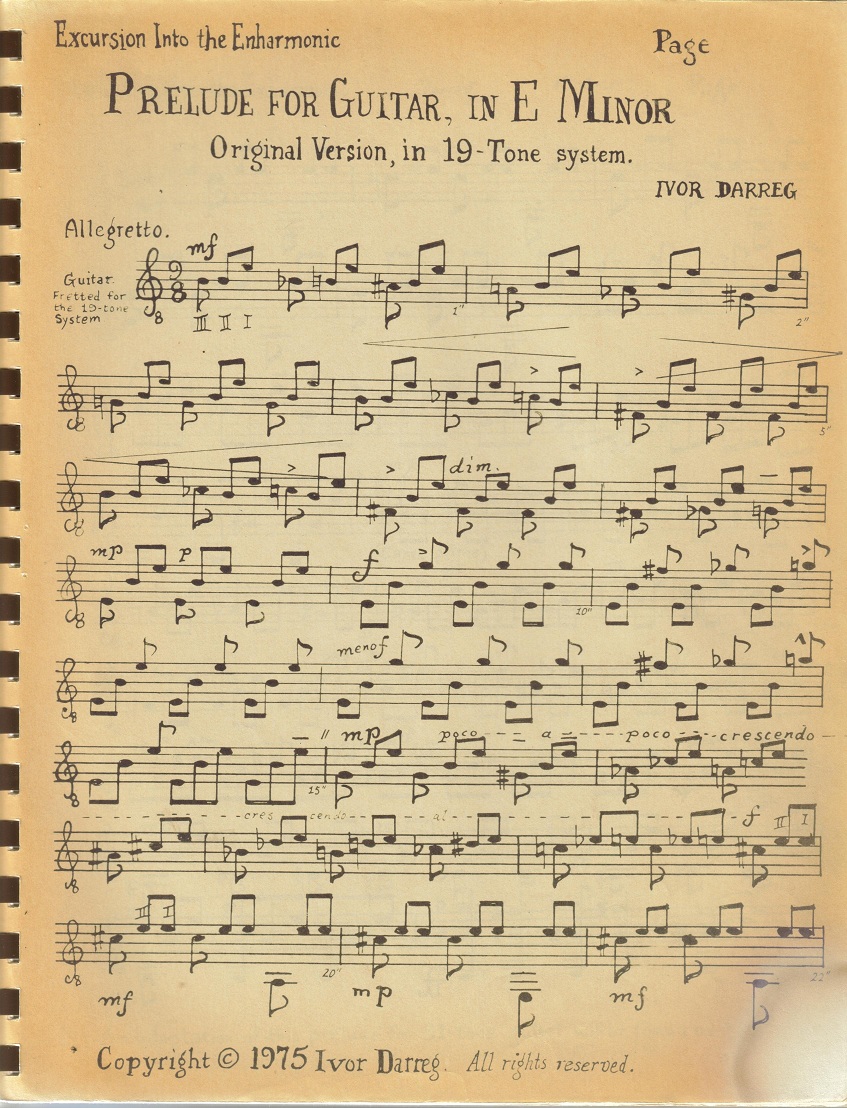 Excursion Into the Enharmonic
Page
PRELUDE FOR GUITAR, IN E MINOR
Original Version, in 19-Tone system.
IVOR DARREG
Allegretto.
mf
Guitar.
Fretted for
the 19-tone
System
9
8
8
III II I
1"
2"
8
5"
dim.
8
mp p f
8
10"
meno f
8
mp poco a poco crescendo
8
15"
crescendo al f II I
8
II I
8
20"
22"
mf mp mf
Copyright © 1975 Ivor Darreg. All rights reserved.